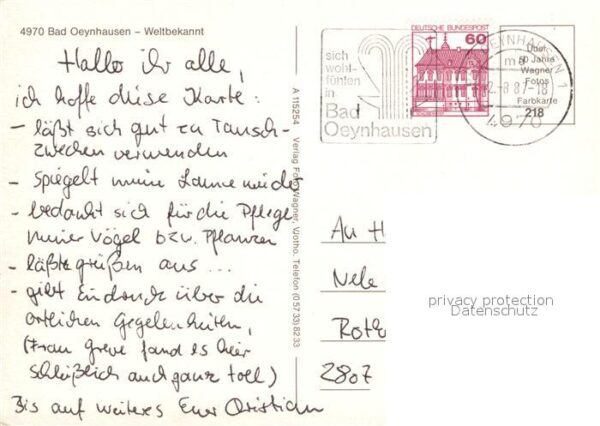 4970 Bad Oeynhausen – Weltbekannt
Hallo ihr alle,
ich hoffe diese Karte:
- läßt sich gut zu Tausch-
zwecken verwenden
- spiegelt meine Laune wieder
- bedankt sich für die Pflege
meiner Vögel bzw. Pflanzen
- läßt grüßen aus ...
- gibt Eindruck über die
örtlichen Gegebenheiten,
(Frau Greve fand es hier
schließlich auch ganz toll)
Bis auf weiteres Euer Christian
A 115254 Verlag Foto Wagner, Vlotho. Telefon (05733) 8233
sich
wohl-
fühlen
in
Bad
Oeynhausen
DEUTSCHE BUNDESPOST
60
OEYNHAUSEN 1
-8 87-18
4970
Über
50 Jahre
Wagner
Fotos
Farbkarte
218
An H
Nele
Roth
2807
privacy protection
Datenschutz